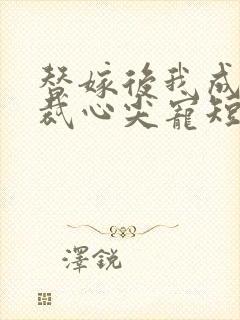 替嫁後我成
裁心尖寵短
澤銳